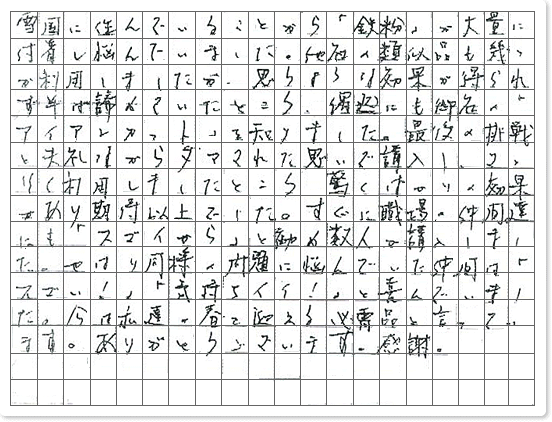 雪国に住んでいることから「鉄粉」が大量に
付着し悩んでいました。他社の類似品も幾つ
か利用しましたが、思うような効果が得られ
ず半ば諦めていたところ、偶然にも御社の「
アイアンカット」を知りました。最後の挑戦
と失礼ながらダマされた思いで購入し、さっ
そく利用しましたところ驚くばかりの効果
があり期待以上でした。すぐに職場の仲間達
にも「スゴイから」と勧め数人が購入しまし
た。やはり同様の問題に悩んでいた仲間は「
スゴい!」「気持ちイイ!」と喜んでいまし
た。今は私達の春を迎える必需品と言ってい
ます。ありがとうございます。感謝。